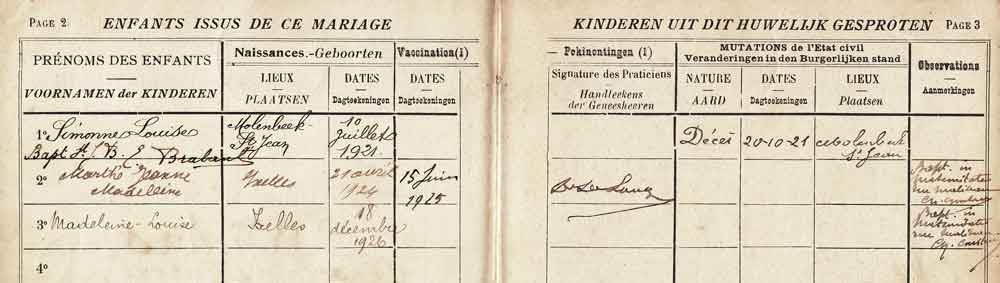 PAGE 2 ENFANTS ISSUS DE CE MARIAGE
KINDEREN UIT DIT HUWELIJK GESPROTEN PAGE 3
PRÉNOMS DES ENFANTS
VOORNAMEN der KINDEREN
Naissances.-Geboorten
LIEUX
PLAATSEN
DATES
Dagteekeningen
Vaccination (1)
DATES
Dagteekeningen
Pokinentingen (1)
Signature des Praticiens
Handteekens
der Geneesheeren
MUTATIONS de l'Etat civil
Veranderingen in den Burgerlijken stand
NATURE
AARD
DATES
Dagteekeningen
LIEUX
Plaatsen
Observations
Aanmerkingen
1° Simonne Louise
Bapt. B. E. Brabant
Molenbeek-
St Jean
10
Juillet
1921.
Décès
20-10-21
Molenbeek
St Jean
2° Marthe Jeanne
Madeleine
Ixelles
21 avril
1924
15 Juin
1925
Bapt. in
3° Madeleine-Louise
Ixelles
18
décembre
1926
Bapt. in
4°